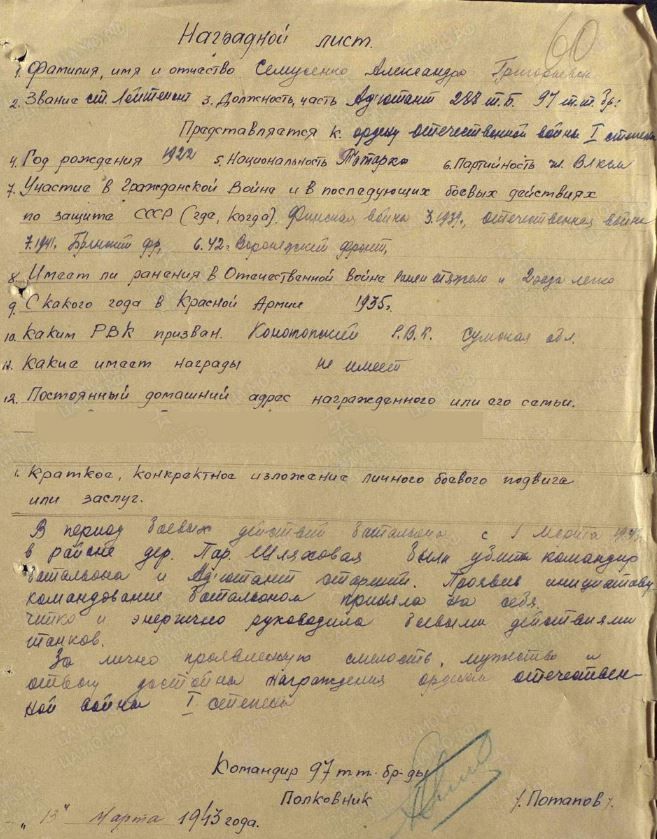 60
Наградной лист.
1. Фамилия, имя и отчество Семусенко Александра Григорьевна
2. Звание ст. Лейтенант 3. Должность, часть Адъютант 288 т.б. 97 т.т. бр.
Представляется к ордену отечественной войны I степени
4. Год рождения 1922 5. Национальность 6. Партийность ВЛКСМ
7. Участие в Гражданской Войне и в последующих боевых действиях
по защите СССР (где, когда). Финская война 1939г., отечественная война
7.1941. Брянский фр, 6.42г. Воронежский фронт
8. Имеет ли ранения в Отечественной Войне тяжело и 2 раза легко
9. С какого года в Красной Армии 1935г.
10. Каким РВК призван. Конотопский Р.В.К. Сумская обл.
11. Какие имеет награды не имеет
12. Постоянный домашний адрес награжденного или его семьи.
1. Краткое, конкрактное изложение личного боевого подвига
или заслуг.
В период боевых действий батальона с 1 Марта 1943
в районе дер. Пар. Шляховая были убиты командир
батальона и Адъютант старший. Проявив инициативу
командование батальоном приняла на себя.
чётко и энергично руководила боевыми действиями
танков.
За лично проявленную смелость, мужество и
отвагу достойна награждения орденом отечествен-
ной войны I степени
Командир 97 т.т. бр-ды
Полковник /Потапов/.
"13" Марта 1943 года.